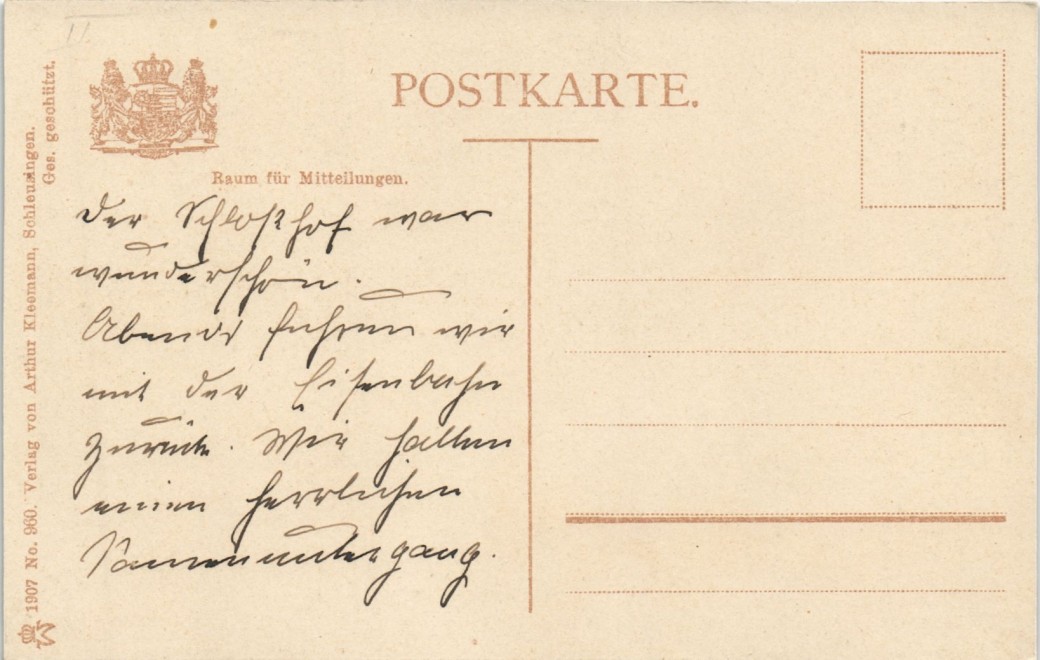 II.
POSTKARTE.
Raum für Mitteilungen.
Der Schloßhof war
wunderschön.
Abends fuhren wir
mit der Eisenbahn
zurück. Wir hatten
einen herrlichen
Sonnenuntergang.
Ges. geschützt.
1907 No. 960. Verlag von Arthur Kleemann, Schleusingen.